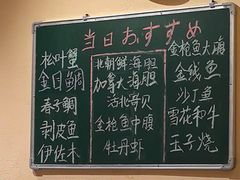 当日おすすめ
松叶蟹
金目鲷
春子鲷
剥皮鱼
伊佐木
北朝鲜海胆
加拿大海胆
活北寄贝
金枪鱼中腹
牡丹虾
金枪鱼大腩
金线鱼
沙丁鱼
雪花和牛
玉子烧